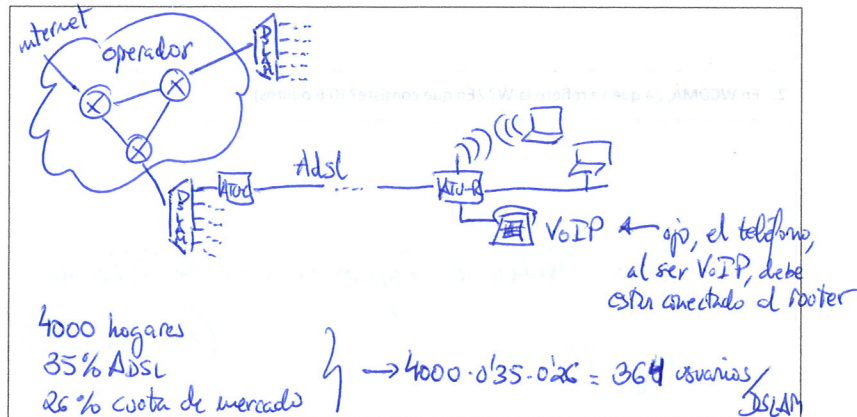 internet
operador
DSLAM
DSLAM
ATU-C
Adsl
ATU-R
VoIP ← ojo, el teléfono,
al ser VoIP, debe
estar conectado al router
4000 hogares
35% ADSL
26% cuota de mercado
→ 4000·0'35·0'26 = 364 usuarios/
DSLAM